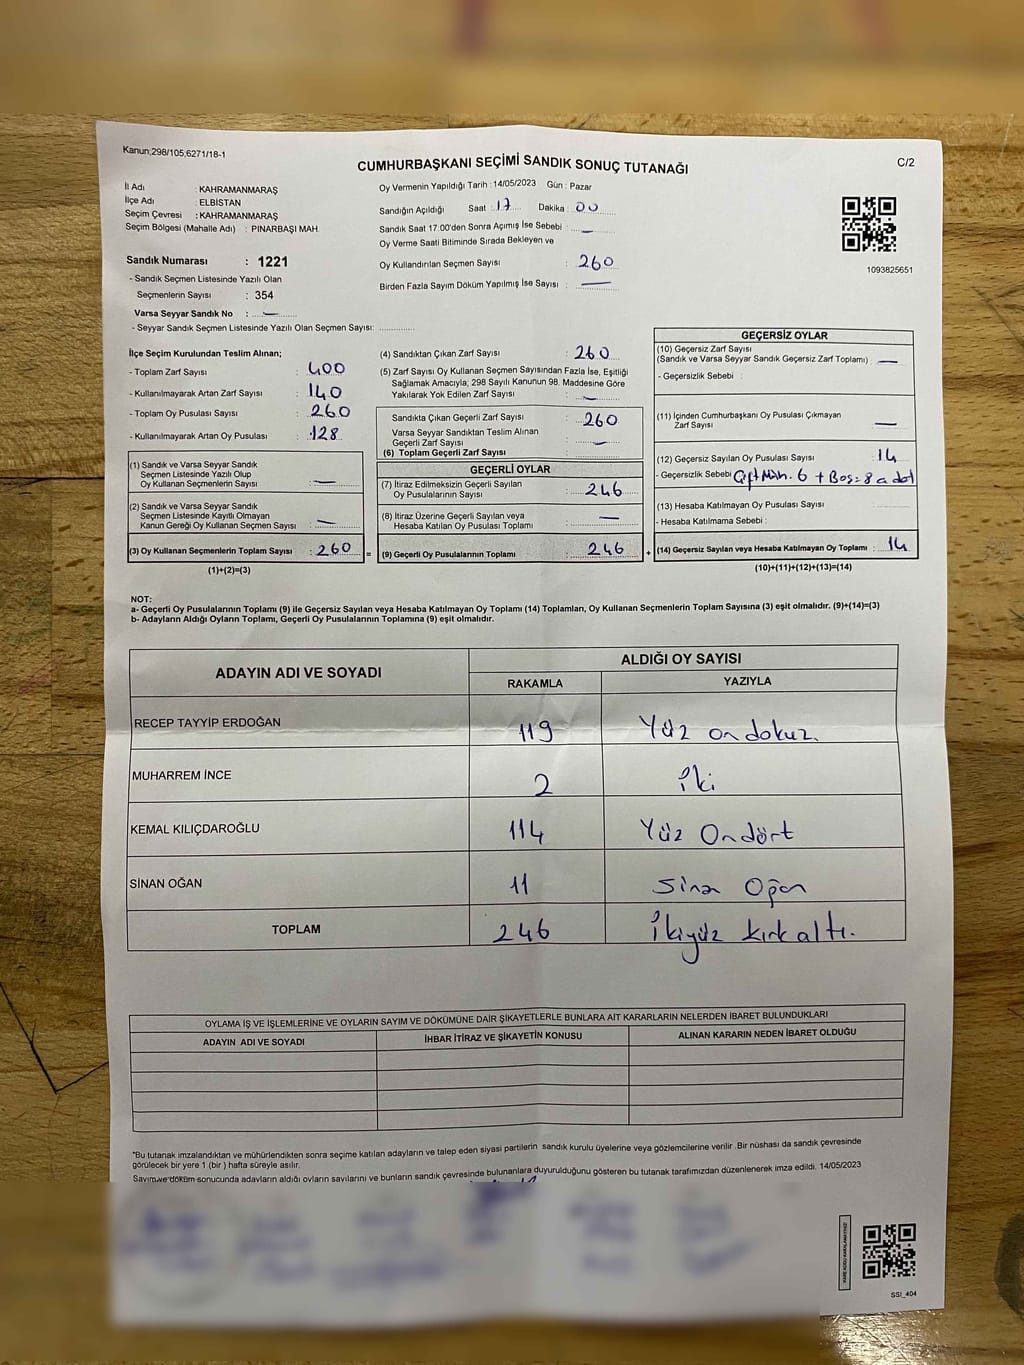 Kanun;298/105;6271/18-1
CUMHURBAŞKANI SEÇİMİ SANDIK SONUÇ TUTANAĞI
C/2
İl Adı : KAHRAMANMARAŞ
İlçe Adı : ELBİSTAN
Seçim Çevresi : KAHRAMANMARAŞ
Seçim Bölgesi (Mahalle Adı) : PINARBAŞI MAH.
Sandık Numarası : 1221
- Sandık Seçmen Listesinde Yazılı Olan
Seçmenlerin Sayısı : 354
Varsa Seyyar Sandık No : —
- Seyyar Sandık Seçmen Listesinde Yazılı Olan Seçmen Sayısı:
Oy Vermenin Yapıldığı Tarih : 14/05/2023 Gün : Pazar
Sandığın Açıldığı Saat : 17 Dakika : 00
Sandık Saat 17.00'den Sonra Açımış İse Sebebi : —
Oy Verme Saati Bitiminde Sırada Bekleyen ve
Oy Kullandırılan Seçmen Sayısı : 260
Birden Fazla Sayım Döküm Yapılmış İse Sayısı : —
1093825651
İlçe Seçim Kurulundan Teslim Alınan;
- Toplam Zarf Sayısı : 400
- Kullanılmayarak Artan Zarf Sayısı : 140
- Toplam Oy Pusulası Sayısı : 260
- Kullanılmayarak Artan Oy Pusulası : 128
(1) Sandık ve Varsa Seyyar Sandık
Seçmen Listesinde Yazılı Olup
Oy Kullanan Seçmenlerin Sayısı : —
(2) Sandık ve Varsa Seyyar Sandık
Seçmen Listesinde Kayıtlı Olmayan
Kanun Gereği Oy Kullanan Seçmen Sayısı : —
(3) Oy Kullanan Seçmenlerin Toplam Sayısı : 260 =
(1)+(2)=(3)
(4) Sandıktan Çıkan Zarf Sayısı : 260
(5) Zarf Sayısı Oy Kullanan Seçmen Sayısından Fazla İse, Eşitliği
Sağlamak Amacıyla; 298 Sayılı Kanunun 98. Maddesine Göre
Yakılarak Yok Edilen Zarf Sayısı : —
Sandıkta Çıkan Geçerli Zarf Sayısı : 260
Varsa Seyyar Sandıktan Teslim Alınan
Geçerli Zarf Sayısı : —
(6) Toplam Geçerli Zarf Sayısı :
GEÇERLİ OYLAR
(7) İtiraz Edilmeksizin Geçerli Sayılan
Oy Pusulalarının Sayısı : 246
(8) İtiraz Üzerine Geçerli Sayılan veya
Hesaba Katılan Oy Pusulası Toplamı : —
(9) Geçerli Oy Pusulalarının Toplamı : 246 +
GEÇERSİZ OYLAR
(10) Geçersiz Zarf Sayısı
(Sandık ve Varsa Seyyar Sandık Geçersiz Zarf Toplamı) : —
- Geçersizlik Sebebi :
(11) İçinden Cumhurbaşkanı Oy Pusulası Çıkmayan
Zarf Sayısı : —
(12) Geçersiz Sayılan Oy Pusulası Sayısı : 14
- Geçersizlik Sebebi Çift Müh. 6 + Boş=8 adet
(13) Hesaba Katılmayan Oy Pusulası Sayısı :
- Hesaba Katılmama Sebebi :
(14) Geçersiz Sayılan veya Hesaba Katılmayan Oy Toplamı : 14
(10)+(11)+(12)+(13)=(14)
NOT:
a- Geçerli Oy Pusulalarının Toplamı (9) ile Geçersiz Sayılan veya Hesaba Katılmayan Oy Toplamı (14) Toplamları, Oy Kullanan Seçmenlerin Toplam Sayısına (3) eşit olmalıdır. (9)+(14)=(3)
b- Adayların Aldığı Oyların Toplamı, Geçerli Oy Pusulalarının Toplamına (9) eşit olmalıdır.
ADAYIN ADI VE SOYADI ALDIĞI OY SAYISI
RAKAMLA YAZIYLA
RECEP TAYYİP ERDOĞAN 119 Yüz on dokuz.
MUHARREM İNCE 2 iki
KEMAL KILIÇDAROĞLU 114 Yüz Ondört
SİNAN OĞAN 11 Sinan Oğan
TOPLAM 246 İkiyüz kırk altı.
OYLAMA İŞ VE İŞLEMLERİNE VE OYLARIN SAYIM VE DÖKÜMÜNE DAİR ŞİKAYETLERLE BUNLARA AİT KARARLARIN NELERDEN İBARET BULUNDUKLARI
ADAYIN ADI VE SOYADI İHBAR İTİRAZ VE ŞİKAYETİN KONUSU ALINAN KARARIN NEDEN İBARET OLDUĞU
"Bu tutanak imzalandıktan ve mühürlendikten sonra seçime katılan adayların ve talep eden siyasi partilerin sandık kurulu üyelerine veya gözlemcilerine verilir .Bir nüshası da sandık çevresinde
görülecek bir yere 1 (bir ) hafta süreyle asılır.
Sayım ve döküm sonucunda adayların aldığı oyların sayılarını ve bunların sandık çevresinde bulunanlara duyurulduğunu gösteren bu tutanak tarafımızdan düzenlenerek imza edildi. 14/05/2023
KARE KODU KARALAMAYINIZ!
SSI_404